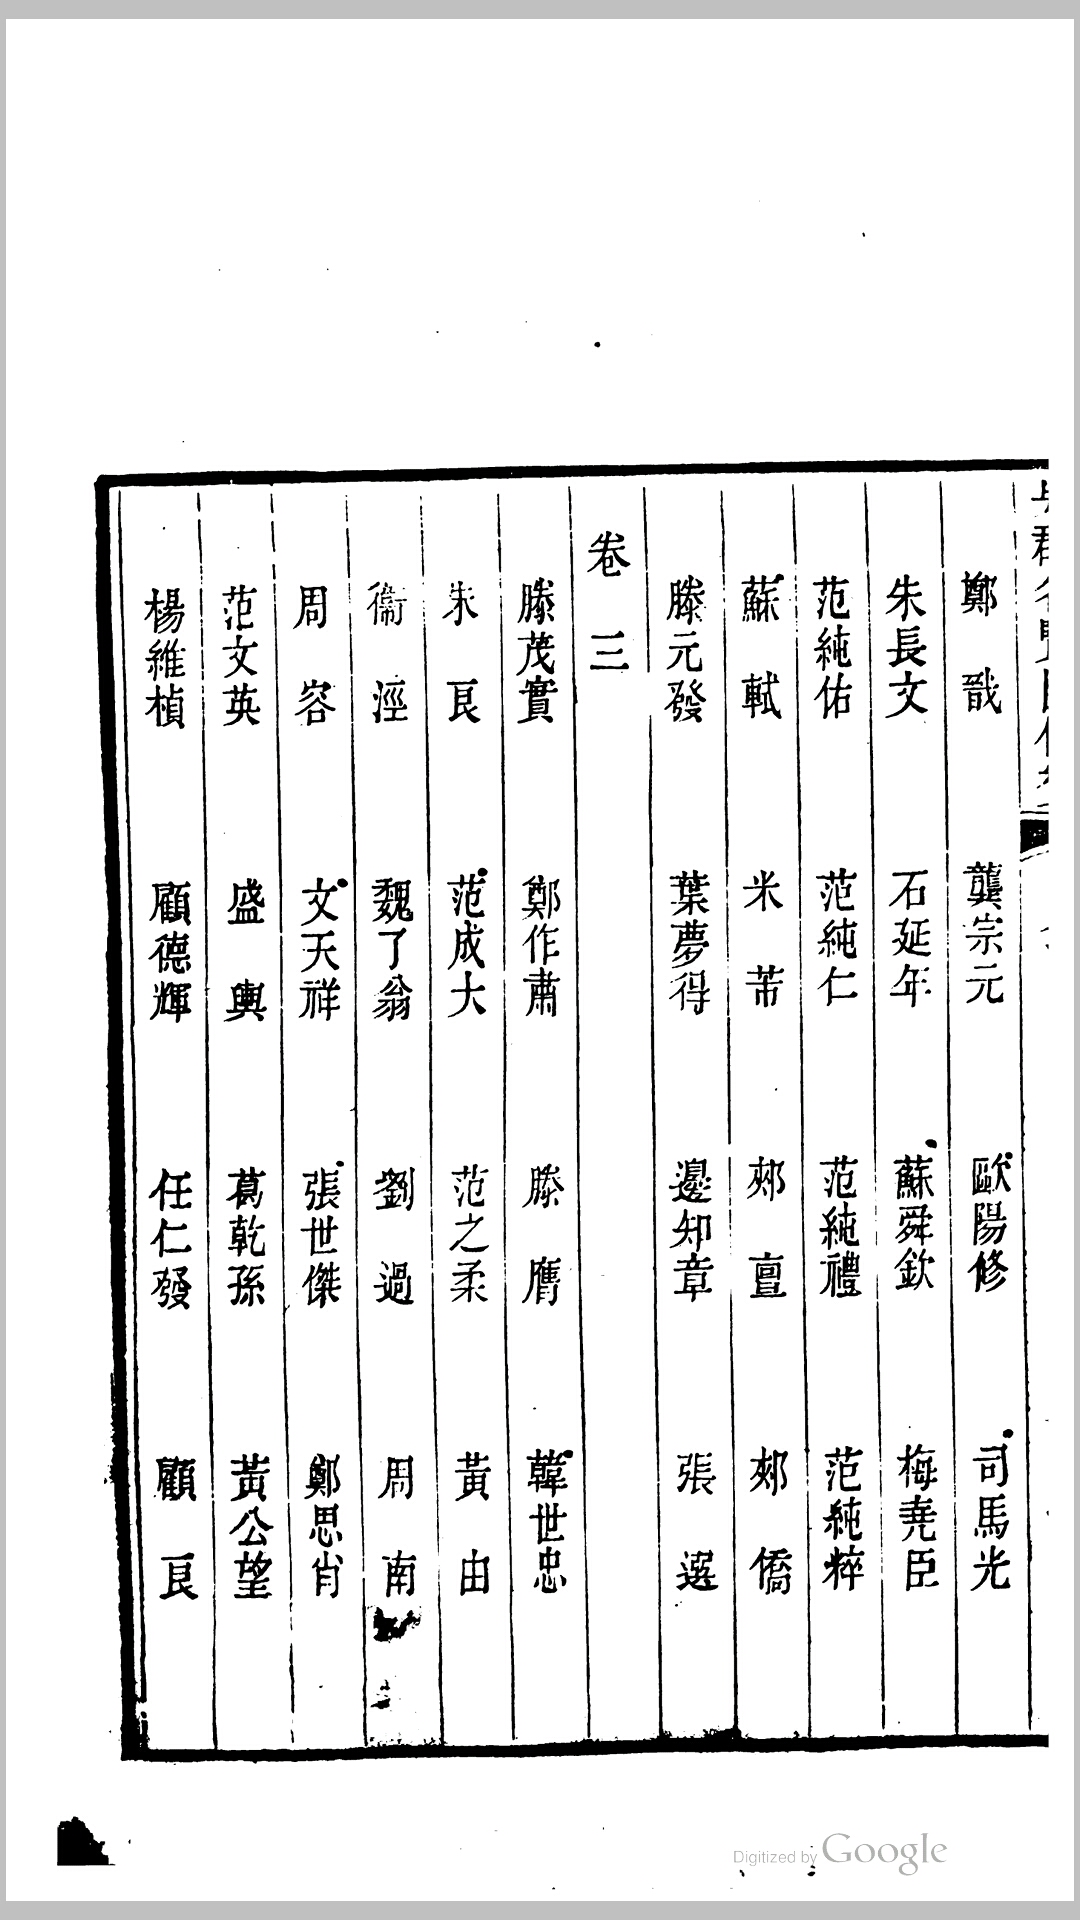 鄭戩　龔宗元　歐陽修　司馬光
朱長文　石延年　蘇舜欽　梅堯臣
范純佑　范純仁　范純禮　范純粹
蘇軾　米芾　郟亶　郟僑
滕元發　葉夢得　邊知章　張選
卷三
滕茂實　鄭作肅　滕膺　韓世忠
朱良　范成大　范之柔　黃由
衞涇　魏了翁　劉過　周南
周容　文天祥　張世傑　鄭思肖
范文英　盛輿　葛乾孫　黃公望
楊維楨　顧德輝　任仁發　顧良
Digitized by Google